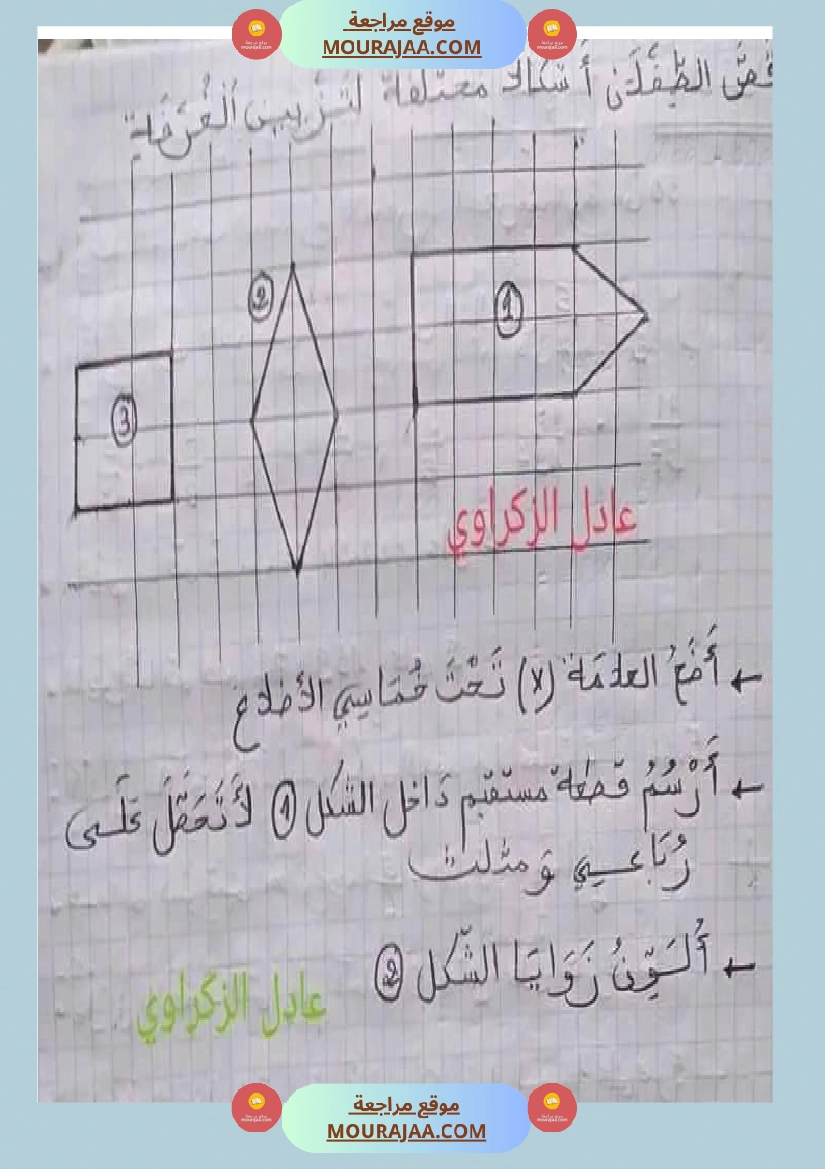 موقع مراجعة
MOURAJAA.COM
قَصَّ الطِّفْلَانِ أَشْكَالًا مختلفة لتزيين الْغُرْفَةِ
1
2
3
عادل الزكراوي
← أَضَعُ العلامَة (x) تَحْتَ خُمَاسِيِّ الأضلاع
← أَرْسُمُ قطعة مستقيم دَاخل الشكل 1 لأَتَحَصَّلَ عَلَــى
رُبَاعــيٍ وَ مثلث
← أُلَــوِّنُ زَوَايَا الشّكل 2
عادل الزكراوي
موقع مراجعة
MOURAJAA.COM